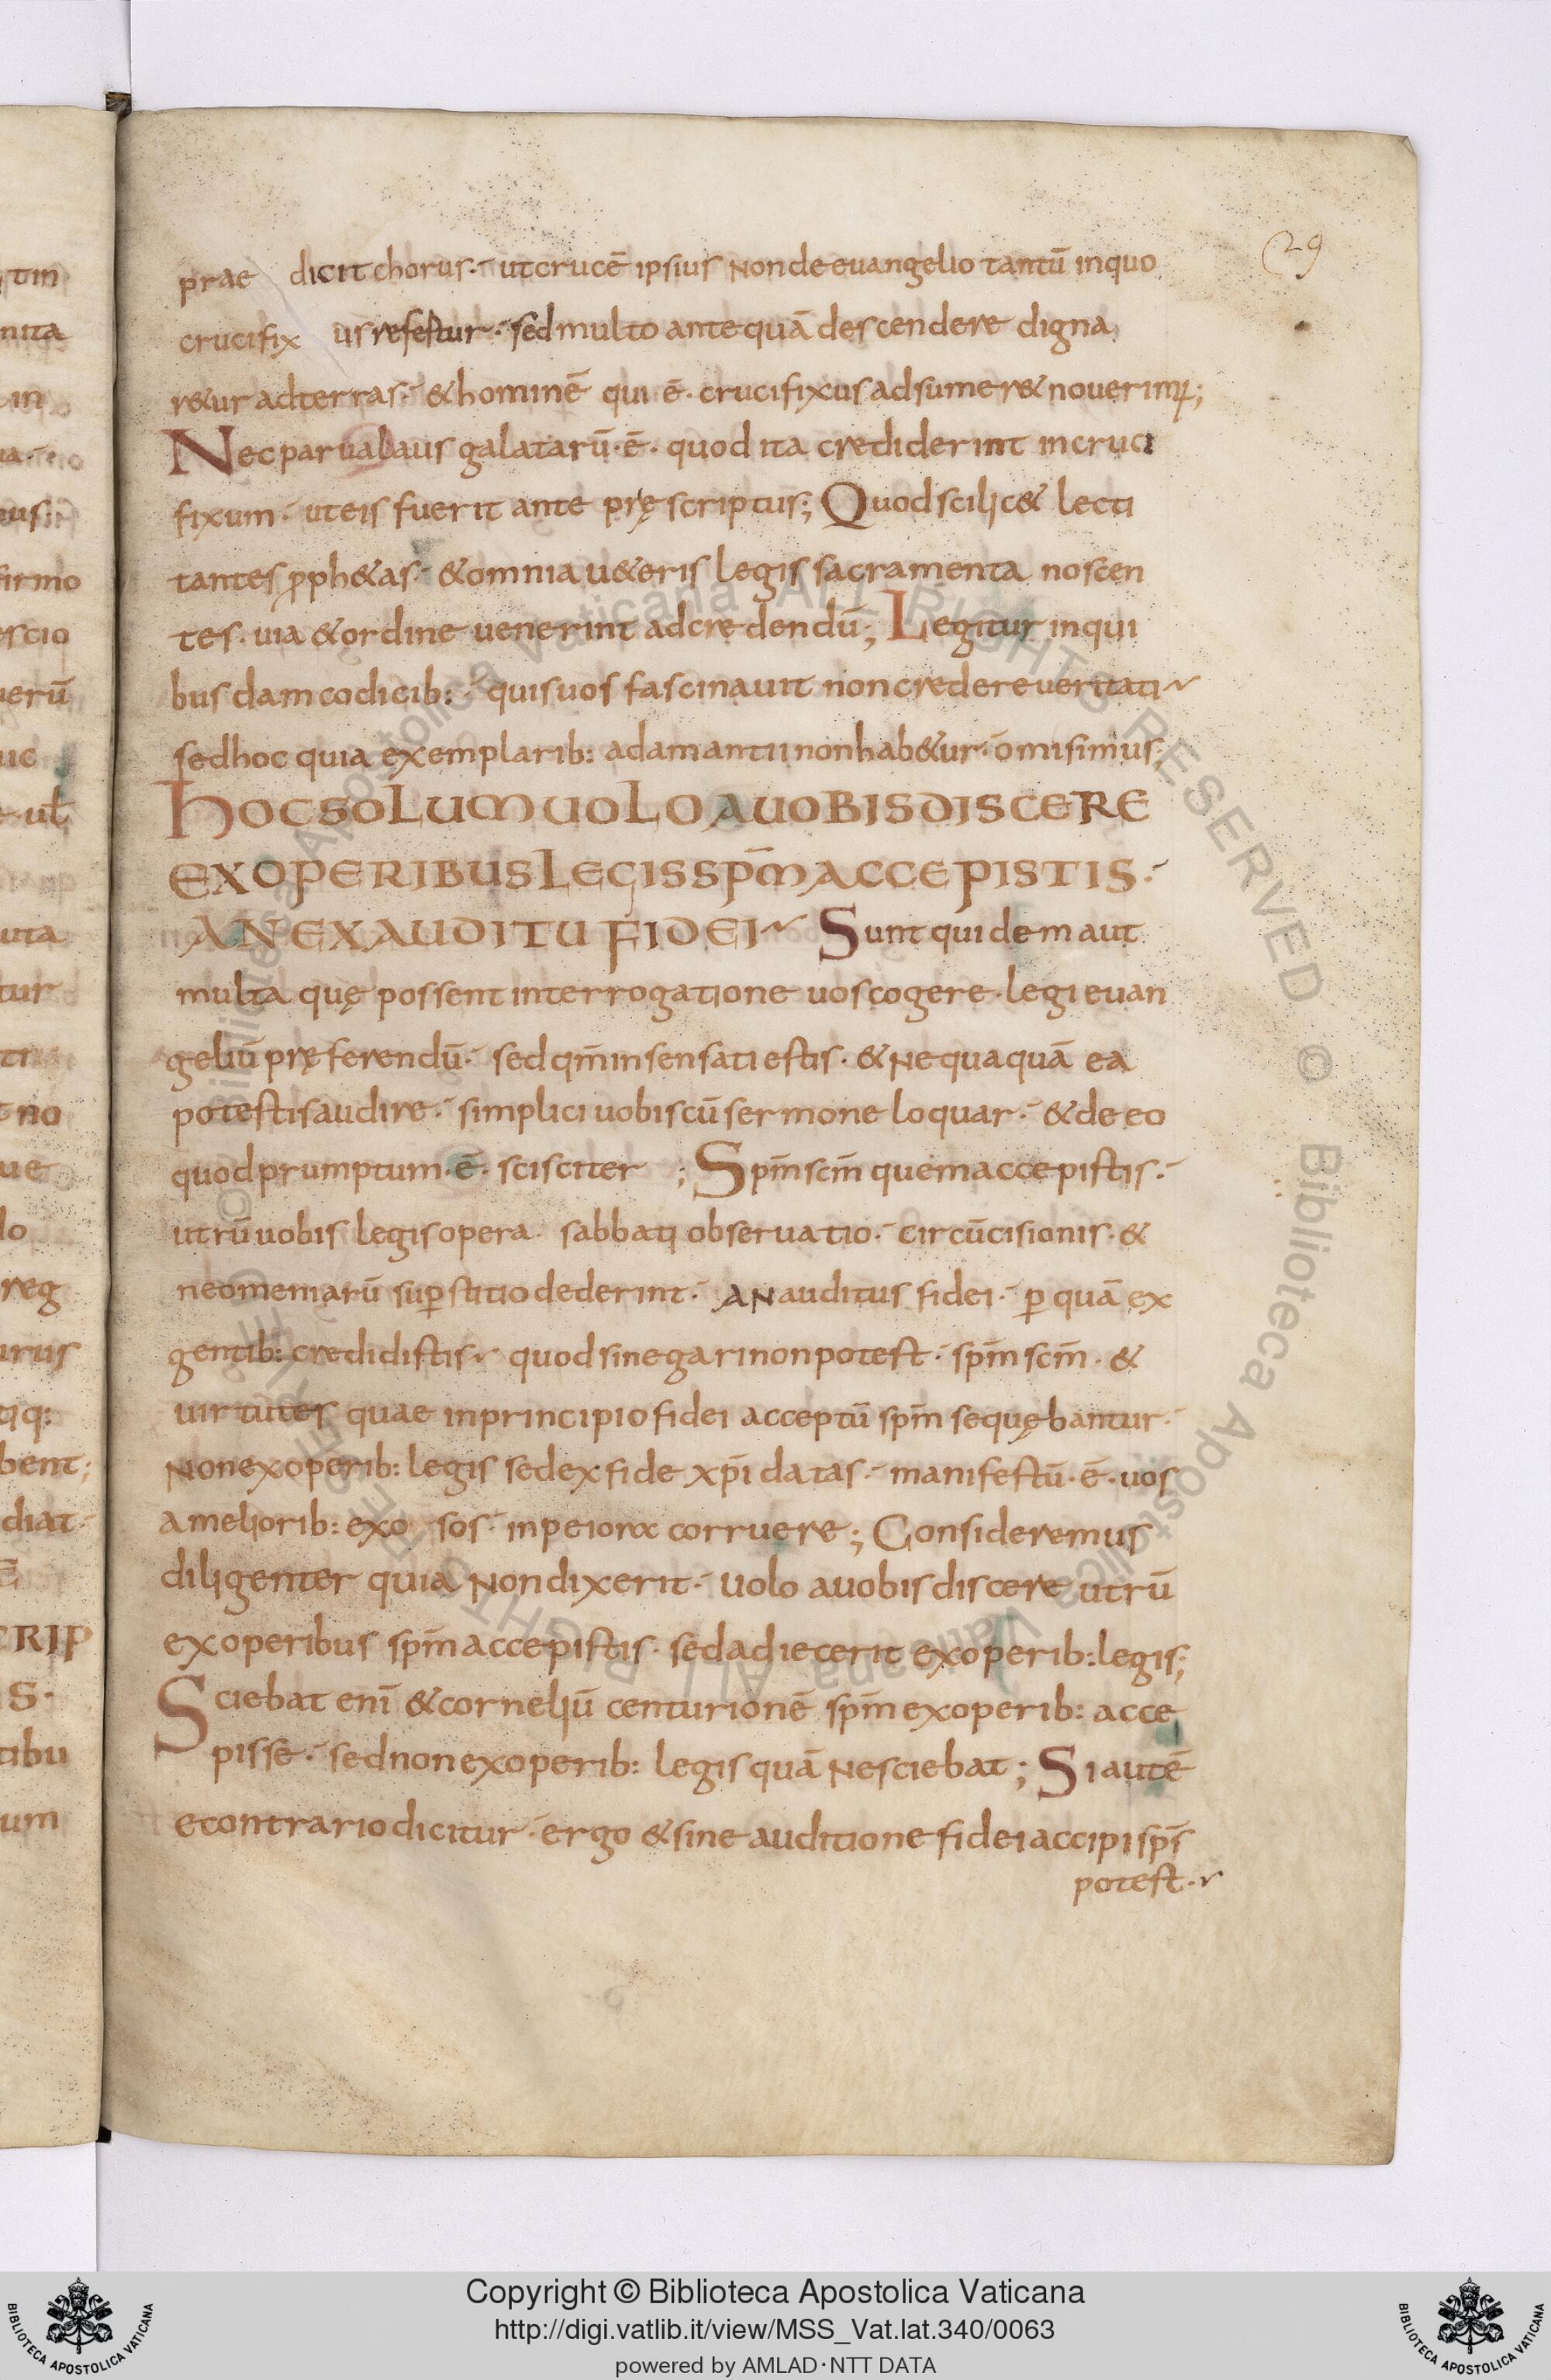 29
prae dicit chorus·- utcrucē ipsius Nondeeuangelio tantū inquo
crucifix us refestur·- sed multo antequā descendere digna
r&ur adterras·- &hominē qui ē· crucifixus adsumer& nouerimꝰ;
Nec parua laus galatarū·ē· quod ita crediderint incruci
fixum·- uteis fuerit ante pręscriptus; Quod scilic& lecti
tantes proph&as·- &omnia u&eris legis sacramenta noscen
tes· uia &ordine uenerint adcredendū; Legitur inqui
busdam codicib:·- quis uos fascinauit non credere ueritati
sed hoc quia exemplarib: adamantii non hab&ur·- omisimus;
HOC SOLUM UOLO A UOBIS DISCERE
EX OPERIBUS LEGIS SPM̄ ACCEPISTIS·-
AN EX AUDITU FIDEI Sunt quidem aut
multa quę possent interrogatione uos cogere· legi euan
geliū pręferendū·- sed qm̄ insensati estis· & Nequaquā ea
potestis audire·- simplici uobiscū sermone loquar·- &de eo
quod prumptum·ē· scisciter ; Spm̄ scm̄ quem accepistis·-
utrū uobis legis opera· sabbati obseruatio·- circūcisionis·&
neomeniarū suꝑstitio dederint·- AN auditus fidei·- ꝑ quā ex
gentib: credidistis quod sinegari non potest·- spm̄ scm̄·&
uirtutes quae inprincipio fidei acceptū spm̄ sequębantur·-
Non exoperib: legis sed ex fide xp̄i datas·- manifestū·ē·uos
ameliorib: exo sos·- inpeiora corruere; Consideremus
diligenter quia Non dixerit·- uolo auobis discere utrū
exoperibus spm̄ accepistis· sed adiecerit exoperib: legis;
Sciebat enī &corneliū centurionē spm̄ exoperib: acce
pisse·- sed non exoperib: legis quā Nesciebat; Si autē
econtrario dicitur·- ergo &sine auditione fidei accipi sps̄
potest·
Copyright © Biblioteca Apostolica Vaticana
http://digi.vatlib.it/view/MSS_Vat.lat.340/0063
powered by AMLAD·NTT DATA